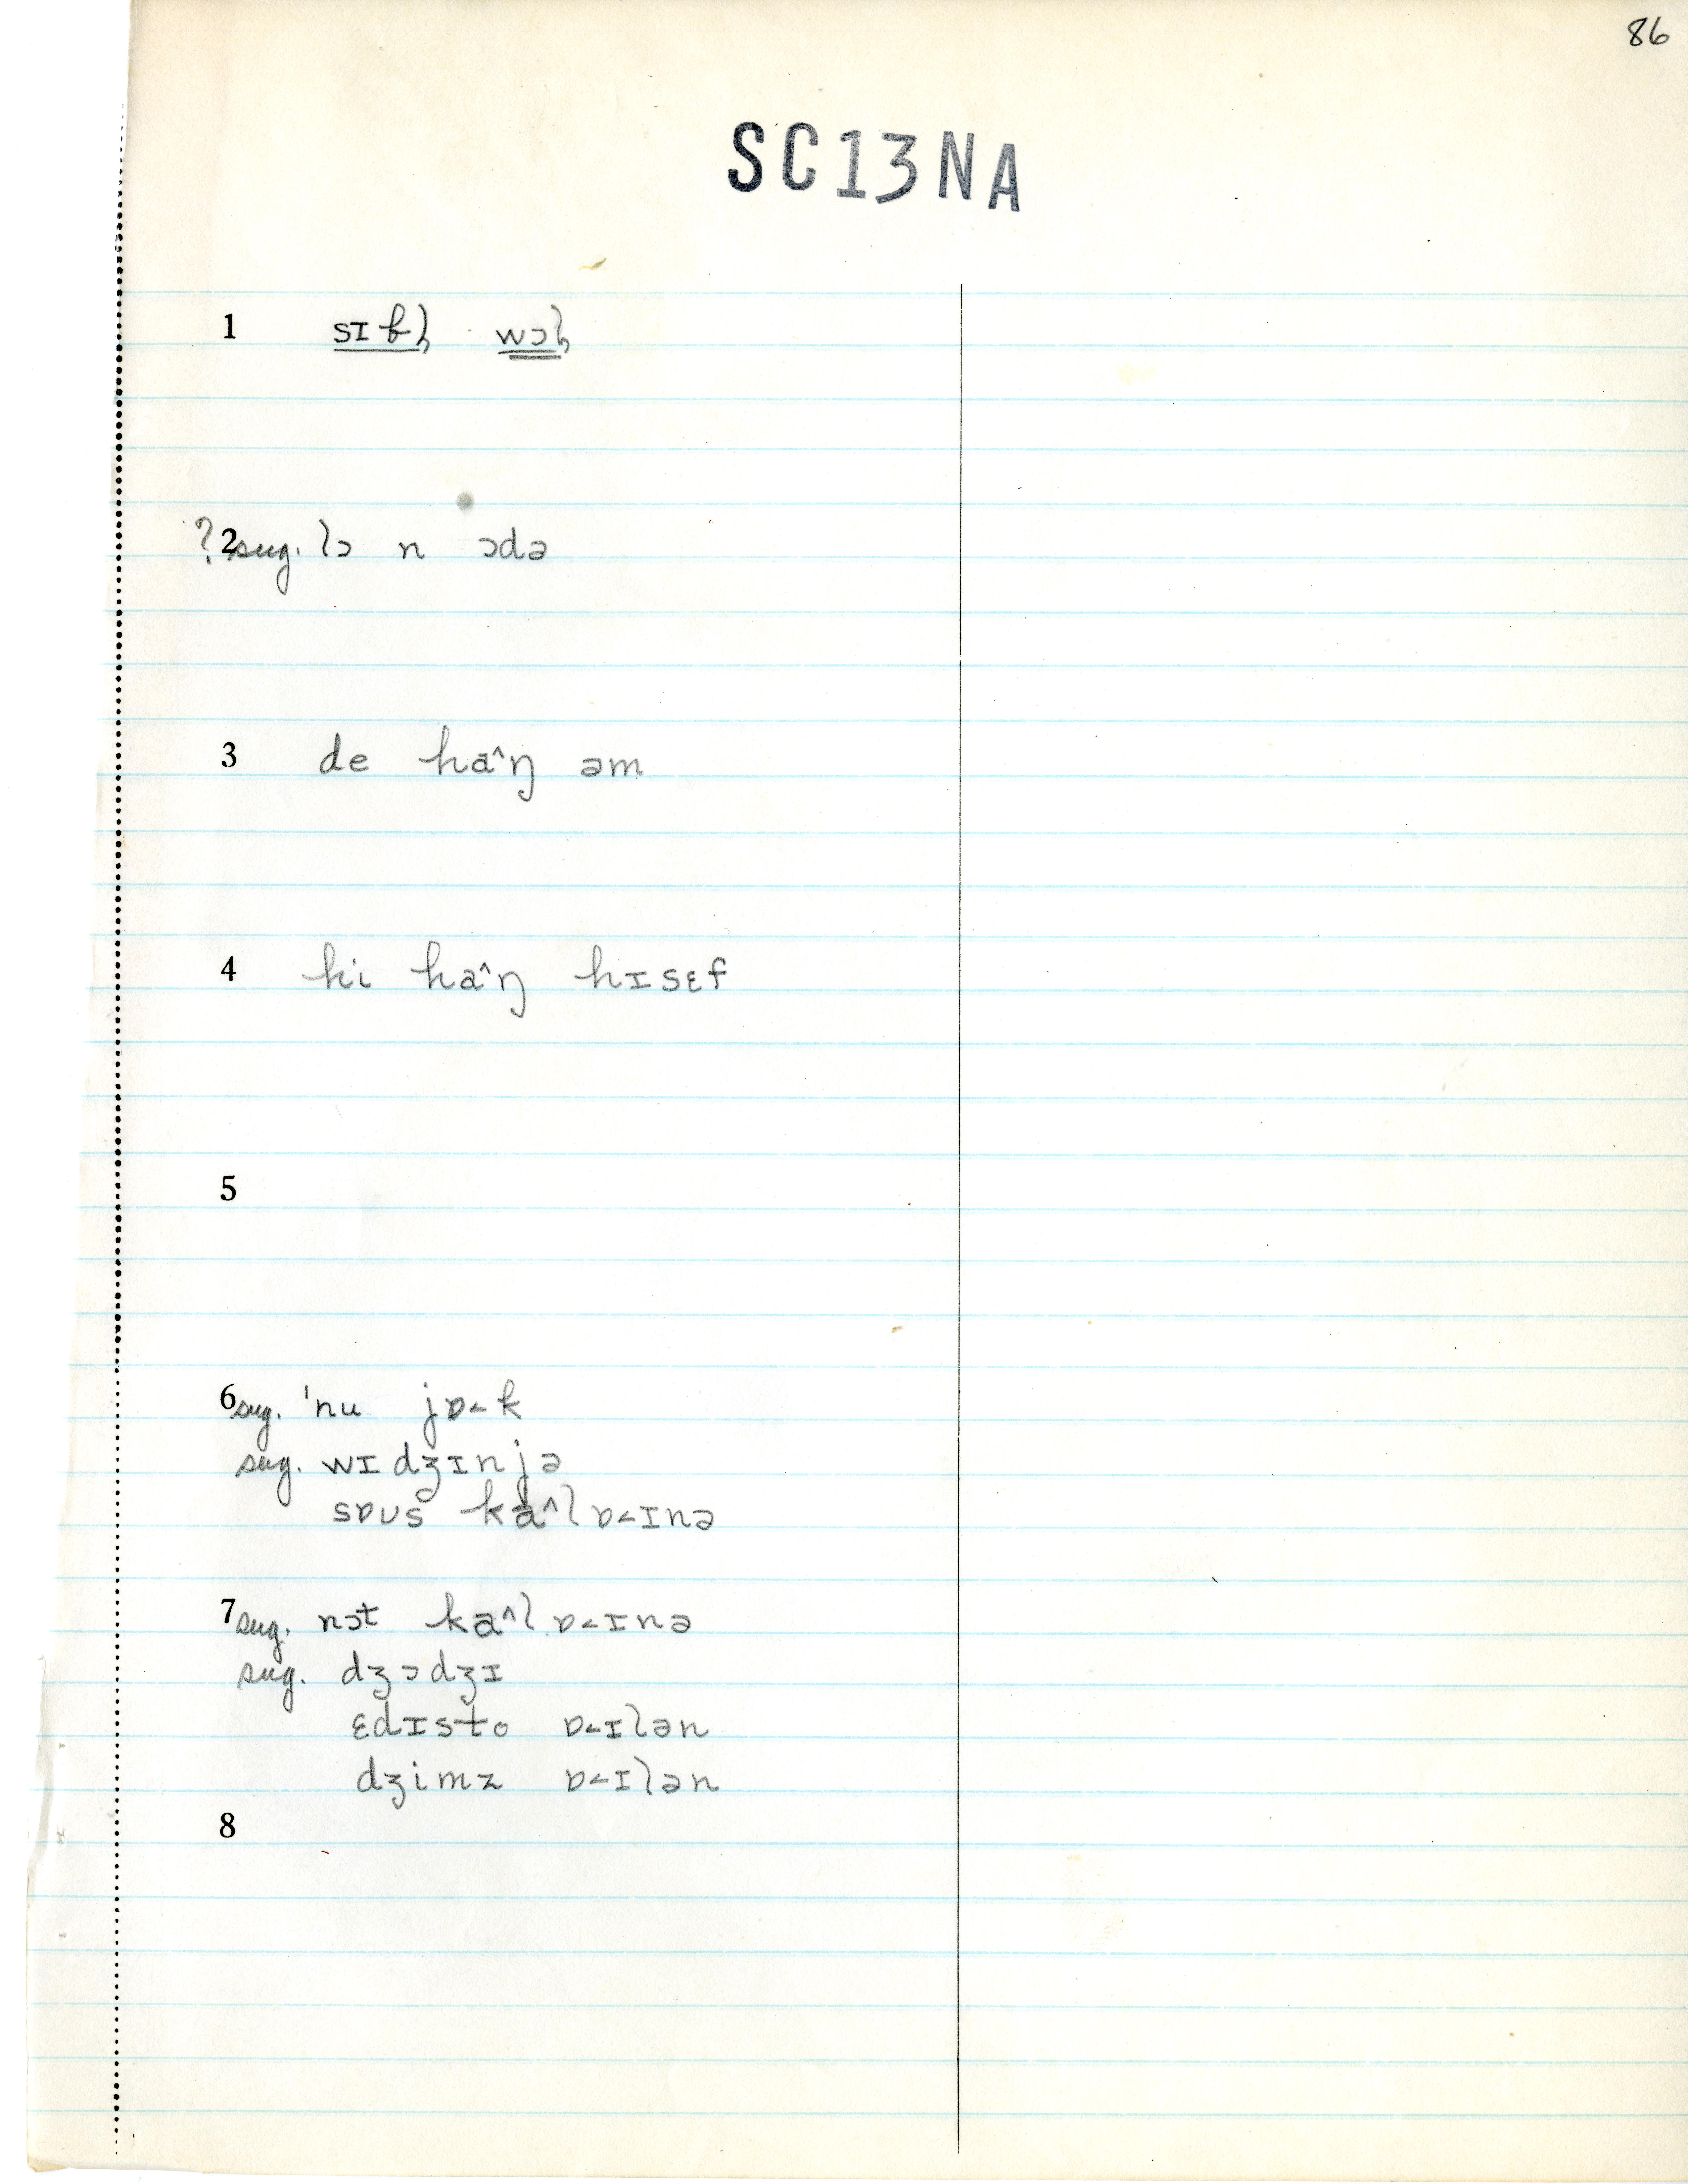 86
SC13NA
1 sɪƀl̩ wɔl̩
? 2 sug. lɔ n ɔdə
3 de ha^ŋ əm
4 hi ha^ŋ hɪsɛf
5
6 sug. 'nu jɒ˂k
sug. wɪdʒɪnjə
sɒʊs ka^lɒ˂ɪnə
7 sug. nɔt ka^lɒ˂ɪnə
sug. dʒɔdʒɪ
ɛdɪsto ɒ˂ɪlən
dʒimz ɒ˂ɪlən
8